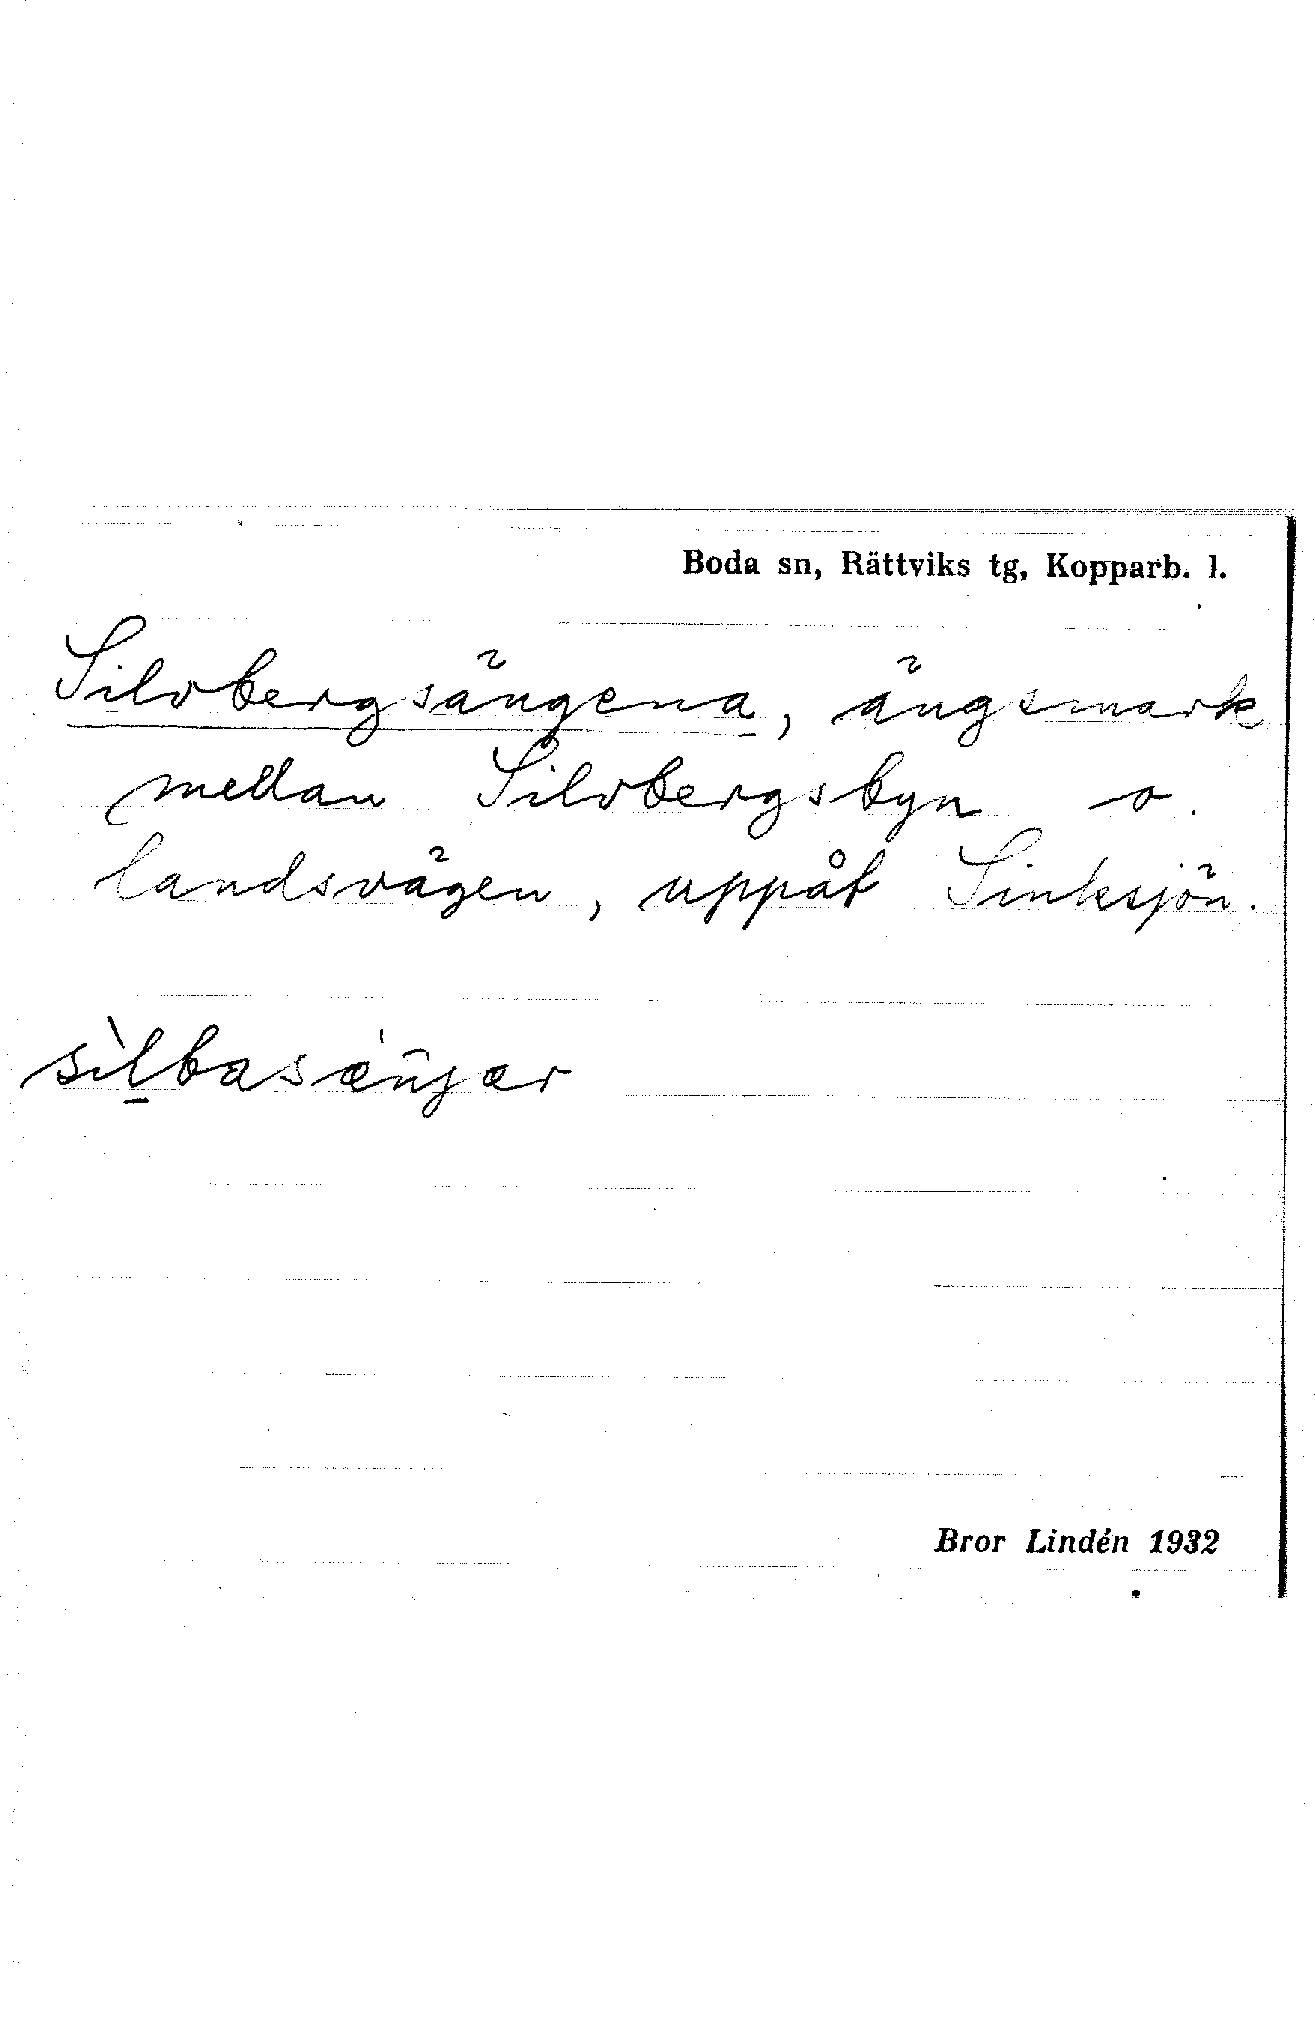 Boda sn, Rättviks tg, Kopparb. l.
Silvbergsängena, ängsmark
mellan Silvbergsbyn o.
landsvägen, uppåt Sinksjön.
sìḻbasæ̀ŋjær
Bror Lindén 1932